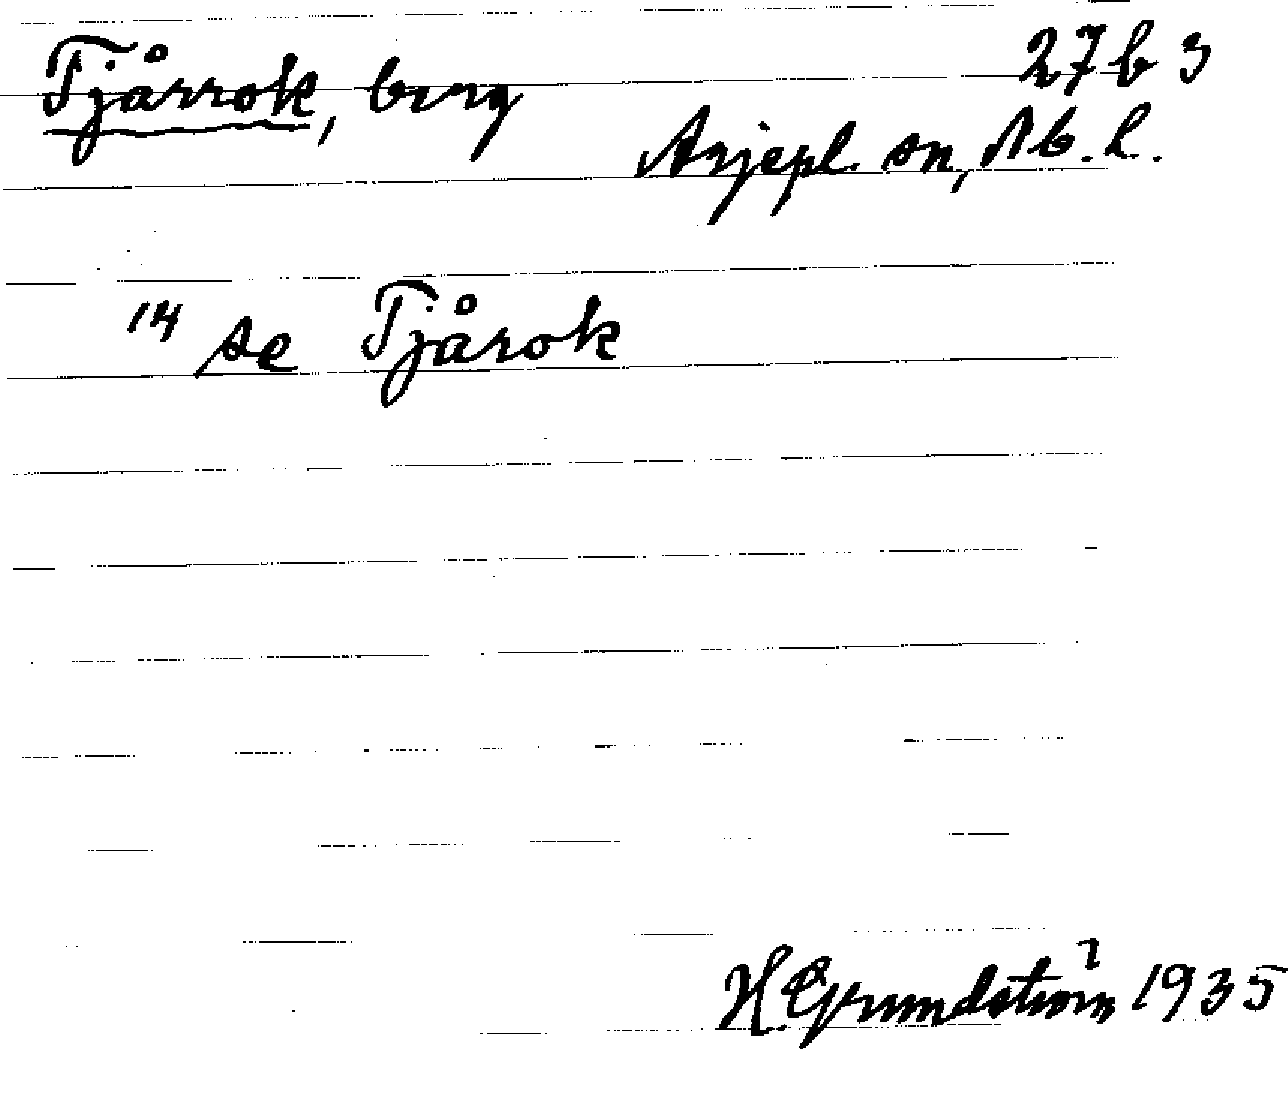 Tjårrok, berg 27 b 3
Arjepl. sn, Nb. l.
14 se Tjårok
H Grundström 1935